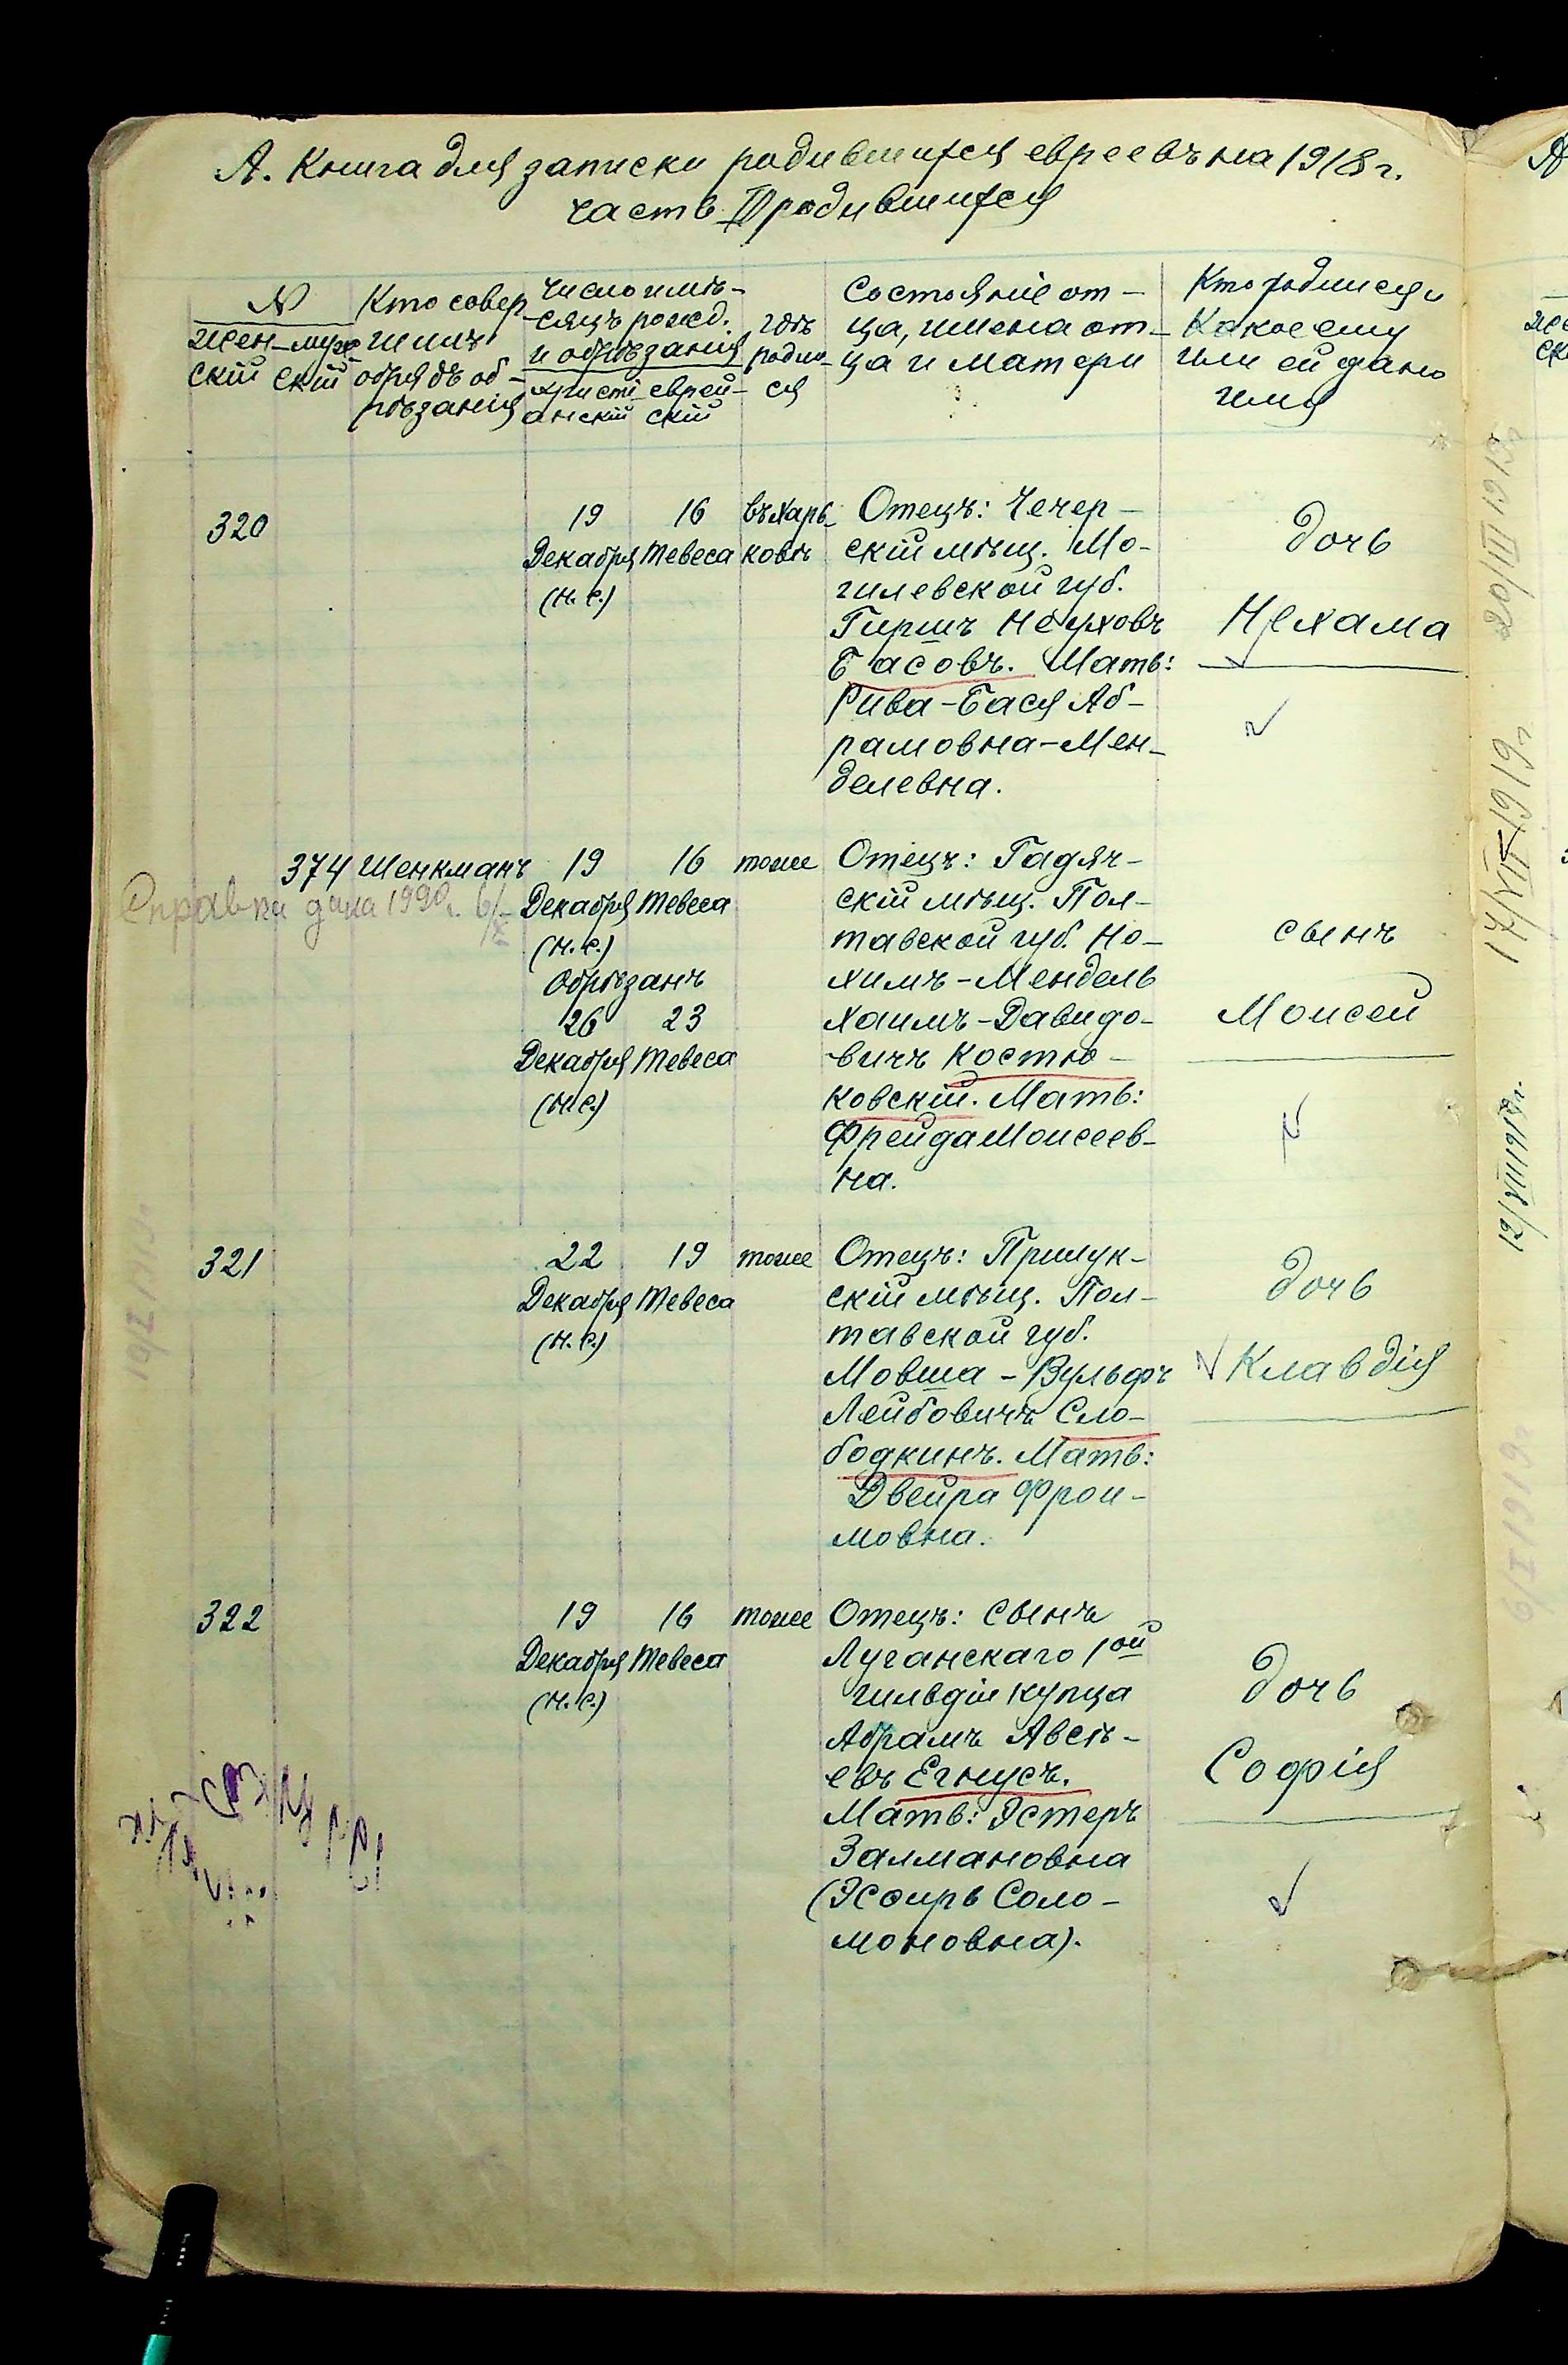 А. Книга для записки родившихся евреевъ на 1918 г.
часть I родившихся
№
жен- муж-
скій скій
Кто совер-
шилъ
обрядъ об-
рѣзанія
Число и мѣ-
сяцъ рожд.
и обрѣзанія
христі- еврей-
анскій скій
гдѣ
родил-
ся
Состояніе от-
ца, имена от-
ца и матери
Кто родился и
какое ему
или ей дано
имя
320
19 16
Декабря Тевеса
(н. с.)
въ Харь-
ковѣ
Отецъ: Чечер-
скій мѣщ. Мо-
гилевской губ.
Гиршъ Неуховъ
Басовъ. Мать:
Рива-Бася Аб-
рамовна-Мен-
делевна.
дочь
Нехама
374 Шенкманъ
Справка дана 1990г.
19 16
Декабря Тевеса
(н. с.)
Обрѣзанъ
26 23
Декабря Тевеса
(н. с.)
тоже
Отецъ: Гадяч-
скій мѣщ. Пол-
тавской губ. Но-
химъ-Мендель
Хаимъ-Давидо-
вичъ Костю-
ковскій. Мать:
Фрейда Моисеев-
на.
сынъ
Моисей
321
22 19
Декабря Тевеса
(н. с.)
тоже
Отецъ: Прилук-
скій мѣщ. Пол-
тавской губ.
Мовша-Вульфъ
Лейбовичъ Сло-
бодкинъ. Мать:
Двейра Фрои-
мовна.
дочь
Клавдія
322
19 16
Декабря Тевеса
(н. с.)
тоже
Отецъ: сынъ
Луганскаго 1ой
гильдіи купца
Абрамъ Авсѣ-
евъ Егнусъ.
Мать: Эстеръ
Залмановна
(Эсѳирь Соло-
моновна).
дочь
Софія
20/III 1919г
17/VII 1919г
12/VIII 1919г.
6/I 1919г